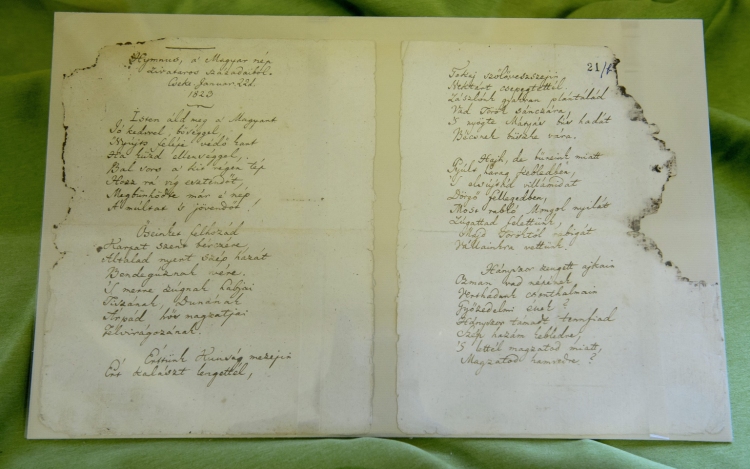 Hymnus, a' Magyar nép
zivataros századaiból.
Cseke Januar. 22d.
1823
Isten áldd meg a' Magyart
Jó kedvvel, bőséggel,
Nyújts feléje védő kart
Ha küzd ellenséggel,
Bal sors a' kit régen tép
Hozz rá víg esztendőt,
Megbűnhődte már e' nép
A' múltat 's jövendőt!
Őseinket felhozád
Kárpát szent bérczére,
Általad nyert szép hazát
Bendegúznak vére.
'S merre zúgnak habjai
Tiszának, Dunának
Árpád hős magzatjai
Felvirágozának.
Értünk Kunság mezejin
Ért kalászt lengettél,
21/
Tokaj szőlővesszejin
Nektárt csepegtettél
Zászlónk gyakran plántálád
Vad Török sánczára,
'S nyögte Mátyás bús hadát
Bécsnek büszke vára.
Hajh, de bűneink miatt
Gyúlt harag kebledben,
'S elsújtád villámidat
Dörgő fellegedben,
Most rabló Mongol nyilát
Zúgattad felettünk,
Majd Töröktől rabigát
Vállainkra vettünk.
Hányszor zengett ajkain
Ozman vad népének
Vert hadunk csonthalmain
Győzedelmi ének?
Hányszor támadt tennfiad
Szép hazám kebledre,
'S lettél magzatod miatt,
Magzatod hamvedre?